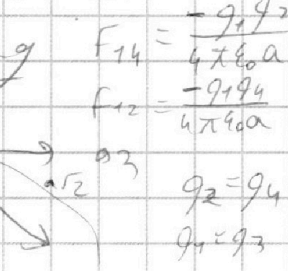 g
F₁₄ = -q₁q₂ / 4πε₀a
F₁₂ = -q₁q₄ / 4πε₀a
a√2
q₂ = q₄
q₁ = q₃